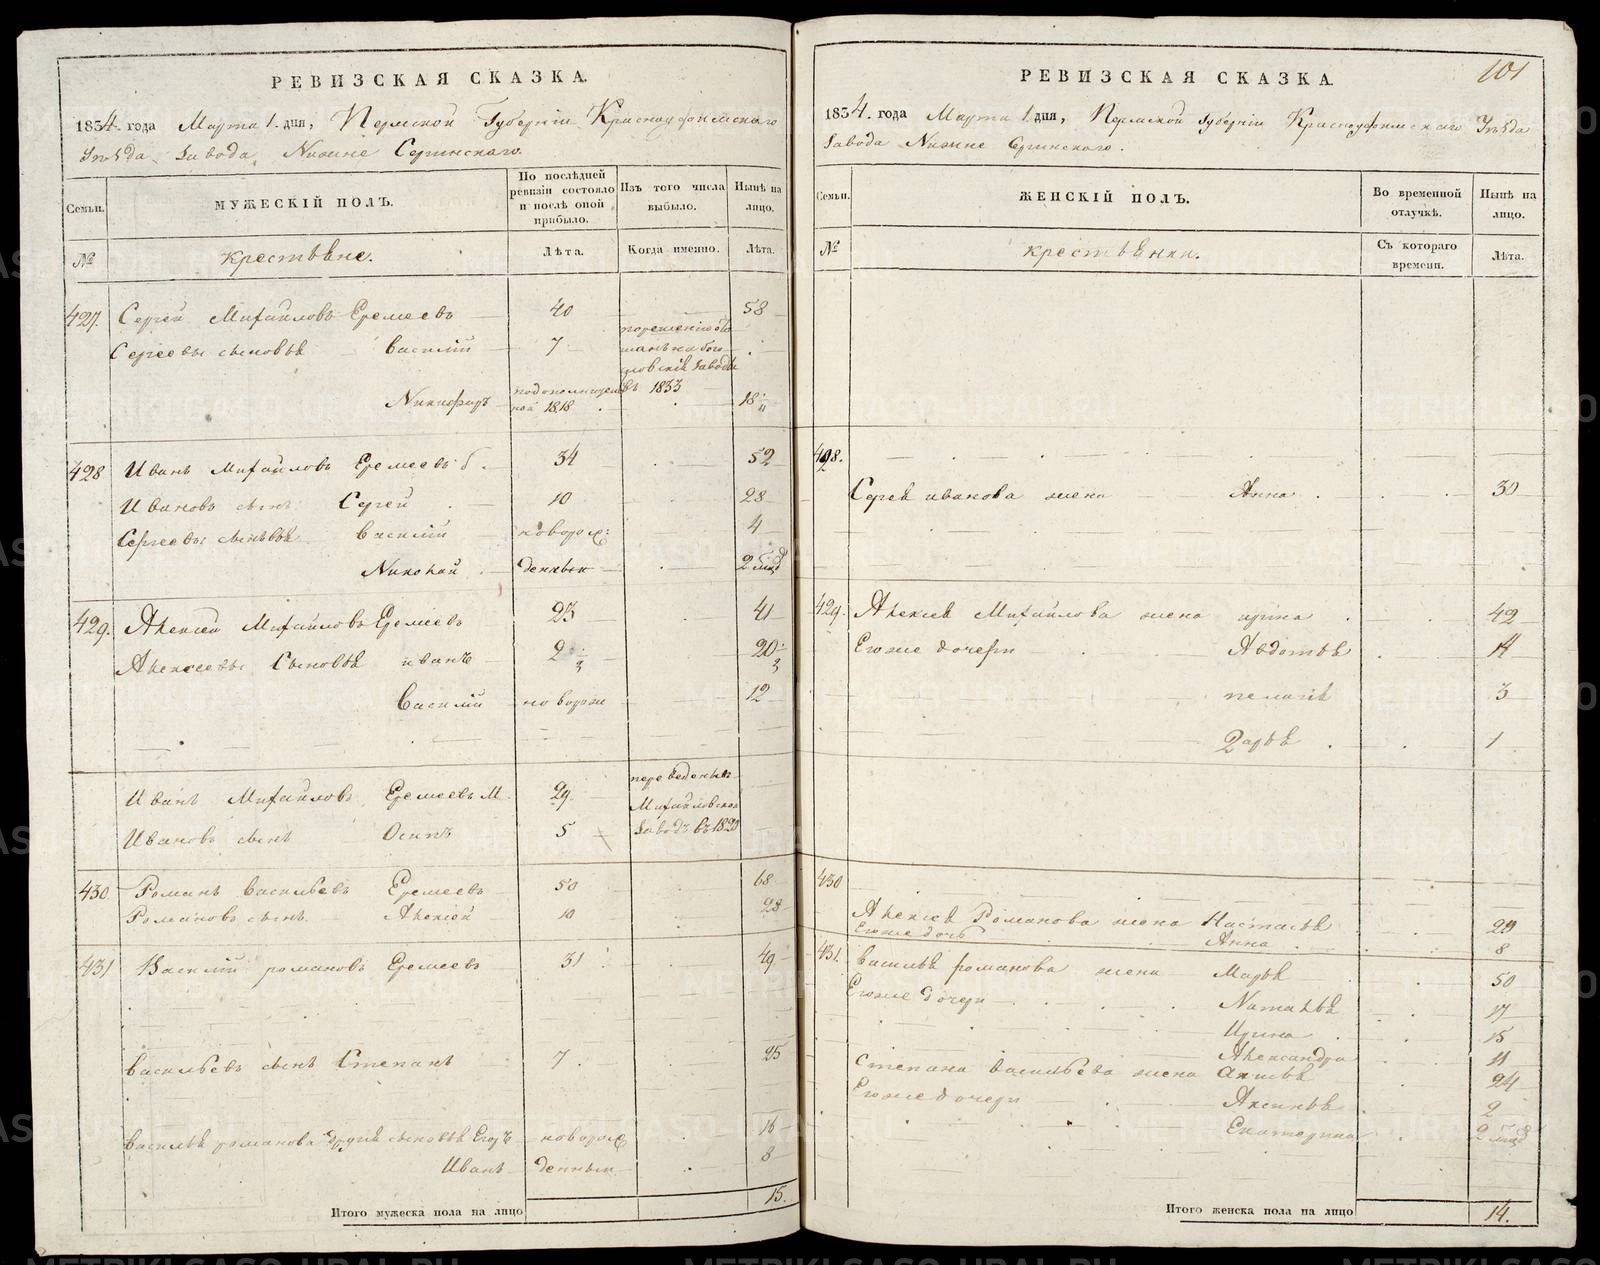 РЕВИЗСКАЯ СКАЗКА.
1834. года Марта 1. дня, Пермской Губерніи Красноуфимскаго
Уѣзда Завода Нижне Сергинскаго.
Семьи.
МУЖЕСКІЙ ПОЛЪ.
По послѣдней
ревизіи состояло
и послѣ оной
прибыло.
Изъ того числа
выбыло.
Нынѣ на
лицо.
№
крестьяне.
Лѣта.
Когда именно.
Лѣта.
427. Сергей Михайловъ Еремеевъ 40 58
Сергеевы сыновья Василій 7
заводы
въ 1833
Никифоръ 1818 18
428 Иванъ Михайловъ Еремеевъ б. 34 52
Ивановъ сынъ Сергей 10 28
Сергеевы сыновья Василій новорож: 4
Николай денныи 2 мѣс
429. Алексей Михайловъ Еремеевъ 23 41
Алексеевы Сыновья иванъ 2 20
Василій новорож 12
Иванъ Михайловъ Еремеевъ М. 29 переведены въ
Михайловской
Ивановъ сынъ Осипъ 5 заводъ въ 1820
430. Романъ Васильевъ Еремеевъ 50 68
Романовъ сынъ Алексей 10 28
431 Василій романовъ Еремеевъ 31 49
Васильевъ сынъ Степанъ 7 25
Василья романова другие сыновья Егоръ новорож 16
Иванъ денныи 8
Итого мужеска пола на лицо 15.
101
РЕВИЗСКАЯ СКАЗКА.
1834. года Марта 1. дня, Пермской Губерніи Красноуфимскаго Уѣзда
Завода Нижне Сергинскаго.
Семьи.
ЖЕНСКІЙ ПОЛЪ.
Во временной
отлучкѣ.
Нынѣ на
лицо.
№
крестьянки.
Съ котораго
времени.
Лѣта.
428.
Сергея иванова жена Анна 30
429. Алексея Михайлова жена ирина 42
Егоже дочери Авдотья 14
пелагія 3
Дарья 1
430
Алексея Романова жена Настасья 29
Егоже дочь Анна 8
431. Василья романова жена Марья 50
Егоже дочери Наталья 17
Ирина 15
Александра 11
Степана Васильева жена Акилья 24
Егоже дочери Аксинья 2
Екатерина 2 мѣс
Итого женска пола на лицо 14.